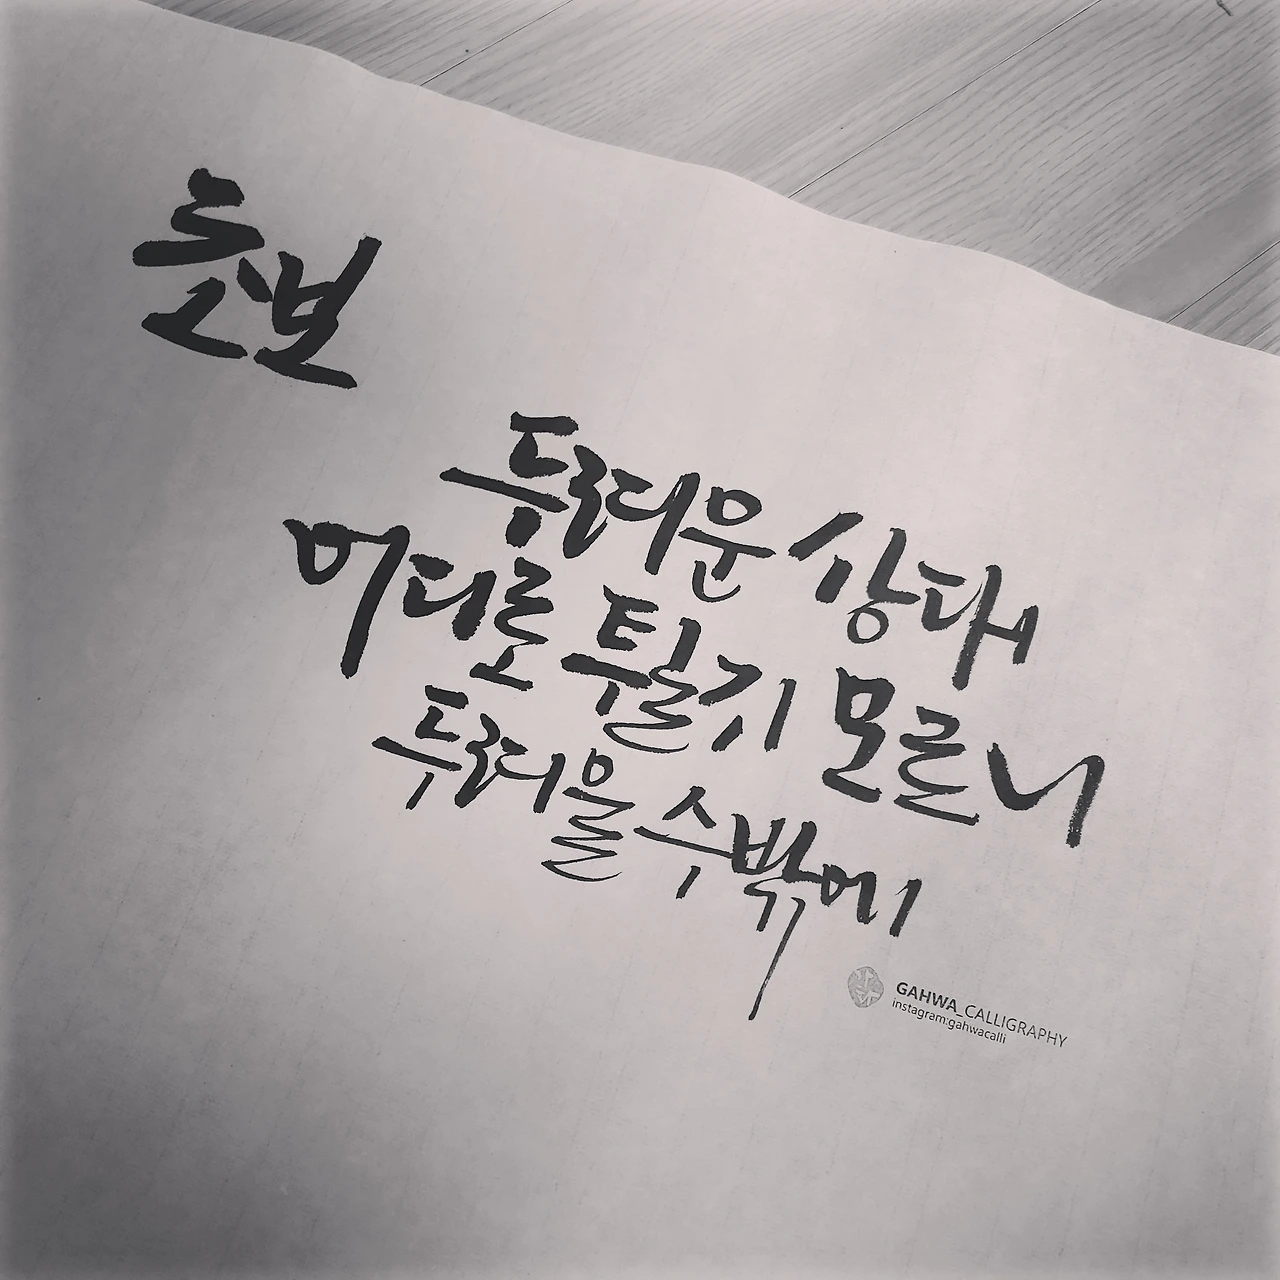 초보
두려운 상대
어디로 튈지 모르니
두려울 수밖에
GAHWA_CALLIGRAPHY
instagram:gahwacalli